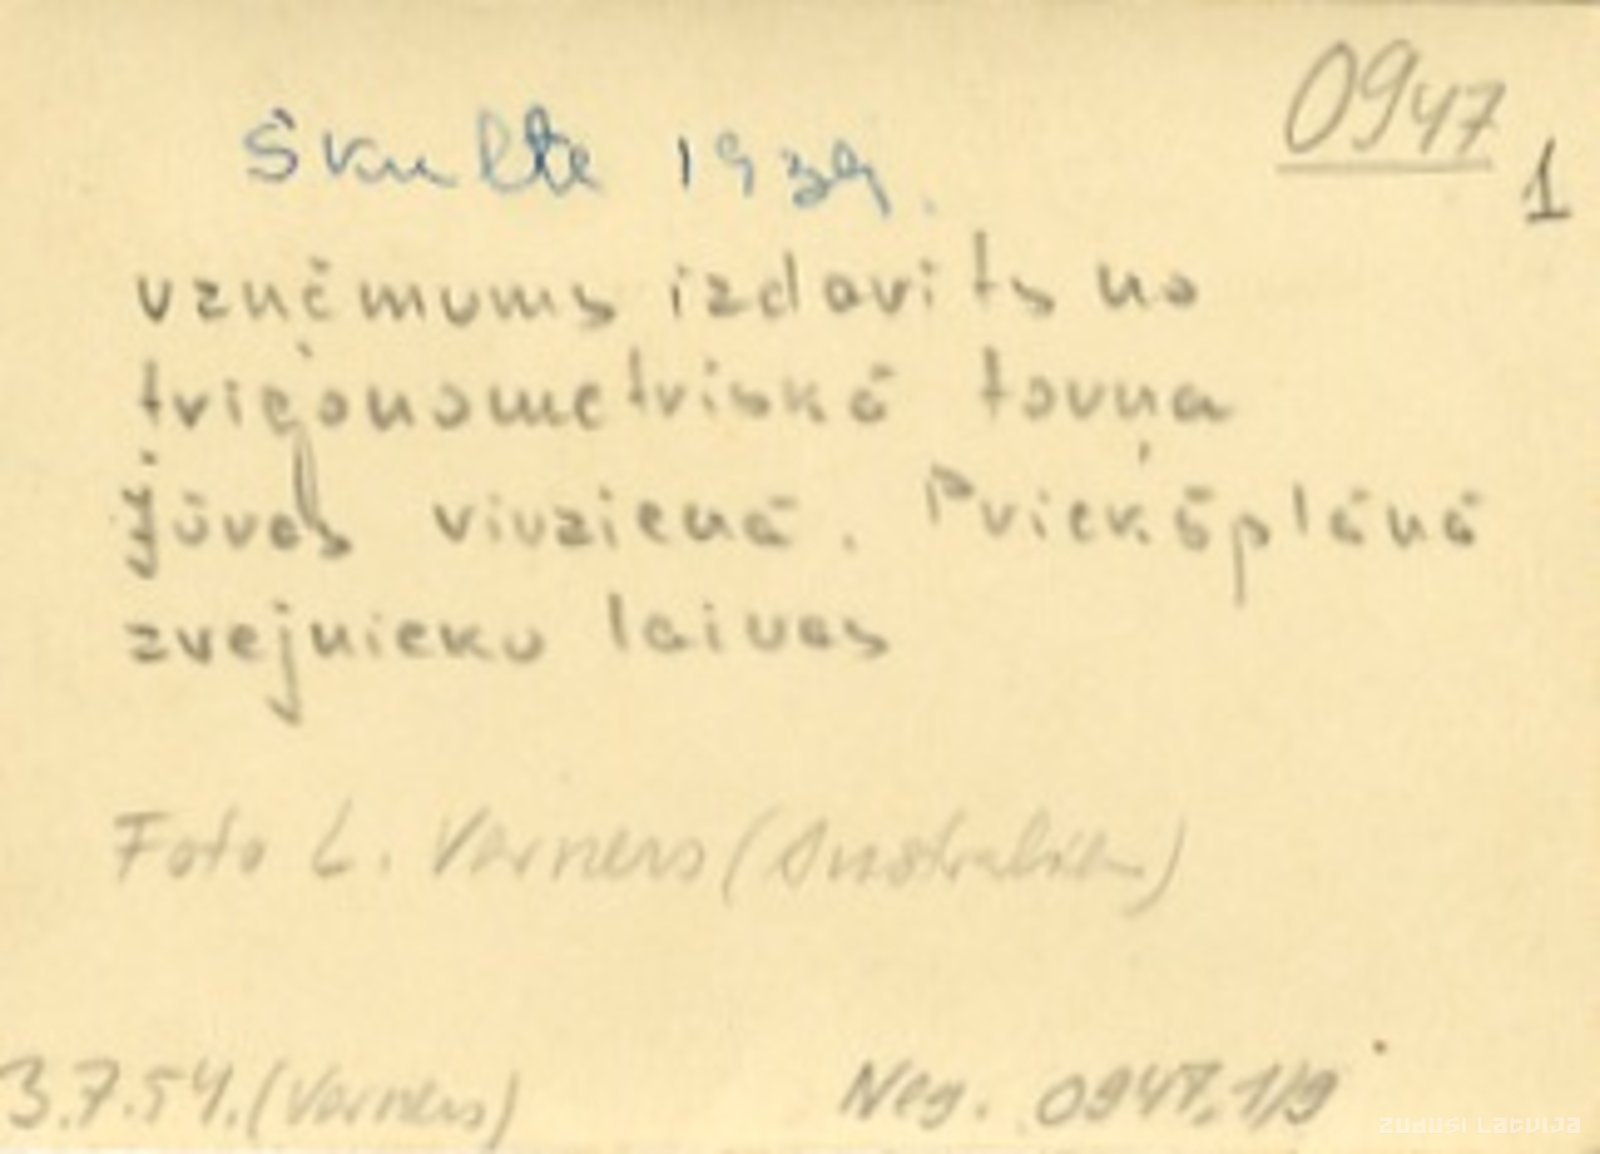 0947
1
Skulte 1939.
uzņēmums izdarits no
trigonometriskā torņa
jūras virzienā. Priekšplānā
zvejnieku laivas
Foto L. Varners (Australia)
3.7.54. (Varners)
Neg. 0947,1/9
ZUDUSI LATVIJA